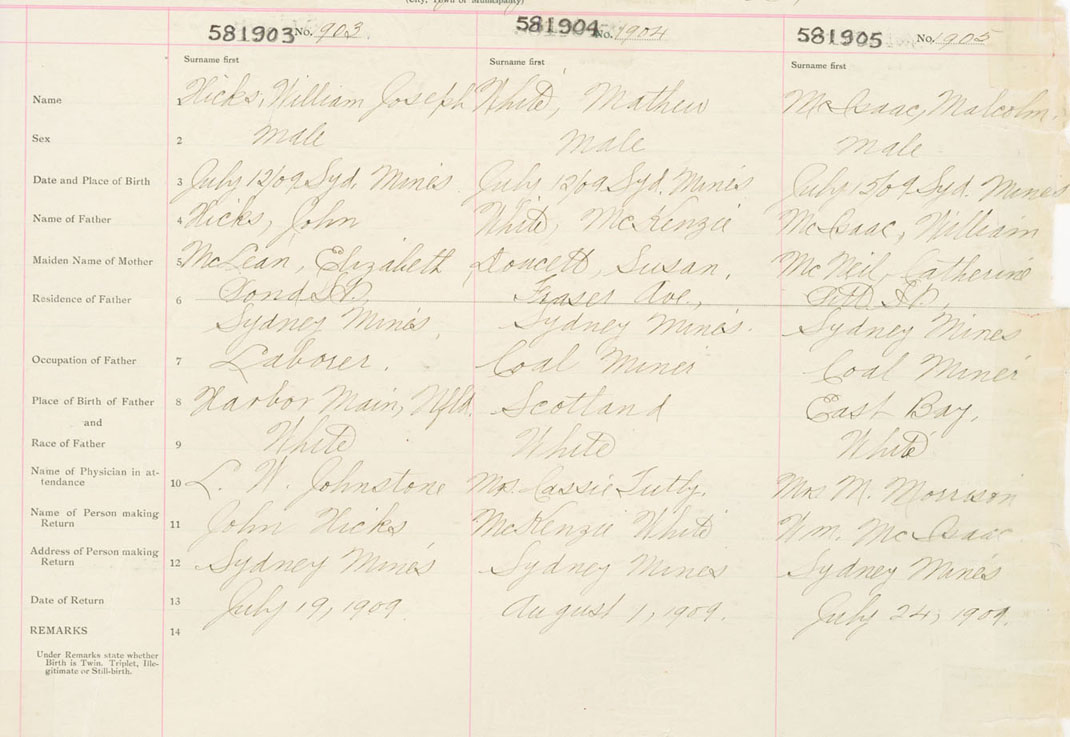 (City, Town or Municipality)
581903 No. 1903 581904 No. 1904 581905 No. 1905
Surname first Surname first Surname first
Name 1 Hicks, William Joseph White, Mathew McIsaac, Malcolm.
Sex 2 male Male Male
Date and Place of Birth 3 July 12/09 Syd. Mines July 12/09 Syd. Mines July 13/09 Syd. Mines
Name of Father 4 Hicks, John White, McKenzie McIsaac, William
Maiden Name of Mother 5 McLean, Elizabeth Doucett, Susan. McNeil, Catherine
Residence of Father 6 St., Fraser Ave., St.,
Sydney Mines Sydney Mines. Sydney Mines
Occupation of Father 7 Laborer. Coal Miner Coal Miner
Place of Birth of Father 8 Harbor Main, Nfld. Scotland East Bay,
and
Race of Father 9 White White White
Name of Physician in at-
tendance 10 L. W. Johnstone Mrs. Cassie Mrs M. Morrison
Name of Person making
Return 11 John Hicks McKenzie White Wm. McIsaac
Address of Person making
Return 12 Sydney Mines Sydney Mines Sydney Mines
Date of Return 13 July 19, 1909 August 1, 1909. July 24, 1909.
REMARKS 14
Under Remarks state whether
Birth is Twin, Triplet, Ille-
gitimate or Still-birth.